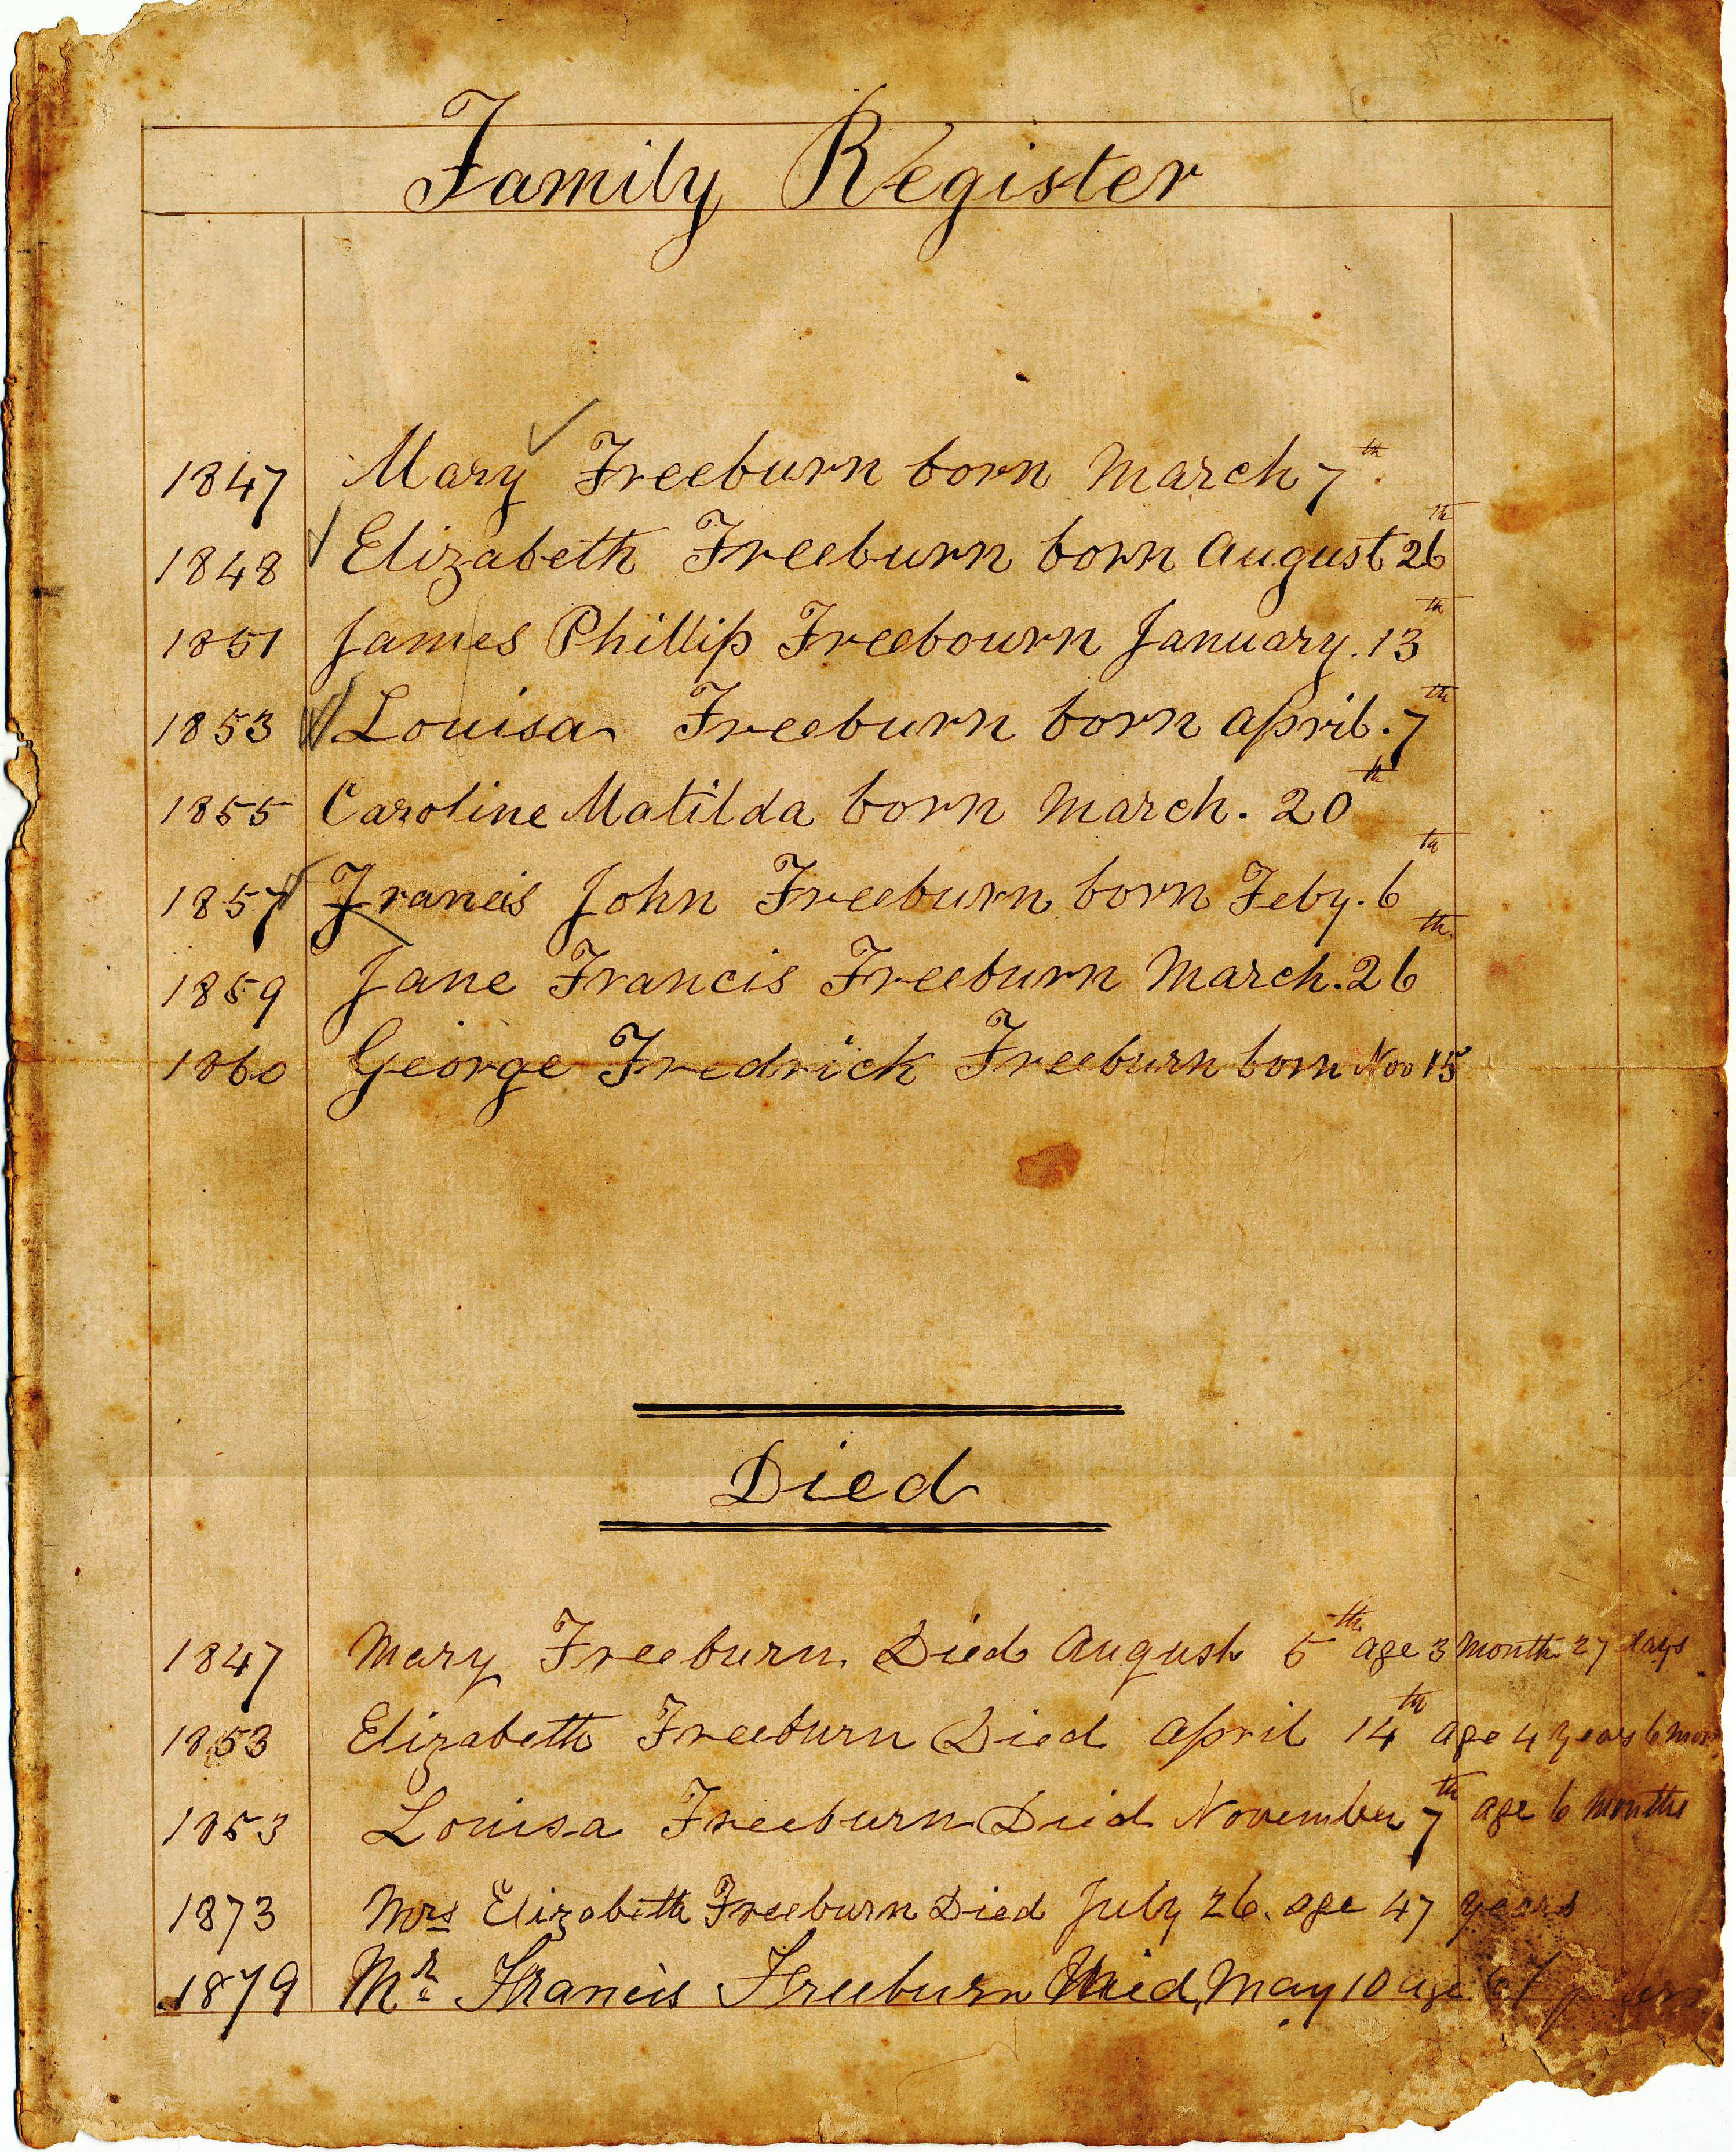 Family Register
1847 Mary Freeburn born March 7th
1848 Elizabeth Freeburn born August 26th
1851 James Phillip Freebourn January. 13th
1853 Louisa Freeburn born April. 7th
1855 Caroline Matilda born March. 20th
1857 Francis John Freeburn born Feby. 6th
1859 Jane Francis Freeburn March. 26th
1860 George Fredrick Freeburn born Nov 15
Died
1847 Mary Freeburn Died August 5th age 3 month 27 days
1853 Elizabeth Freeburn Died April 14th age 4 years 6 mon
1853 Louisa Freeburn Died November 7th age 6 months
1873 Mrs Elizabeth Freeburn Died July 26. age 47 years
1879 Mr Francis Freeburn Died May 10 age